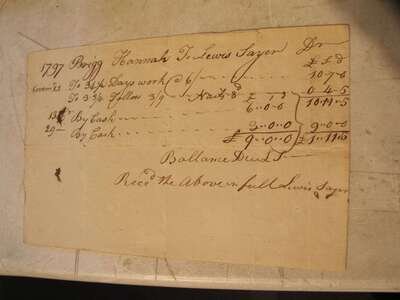 1797 Brigg Hannah To Lewis Sayer Dr
£ S d
To 34½ Days work @ 6/ 10..7..0
To 3 ¾ Tallow 3/9 Nails 8d 0..4..5
£ S 10..11..5
By Cash 6..0..0
29 By Cash 3..0..0 9..0..0
£ 9..0..0 £ 1..11..5
Ballance Due
Recd the Above in full Lewis Sayer